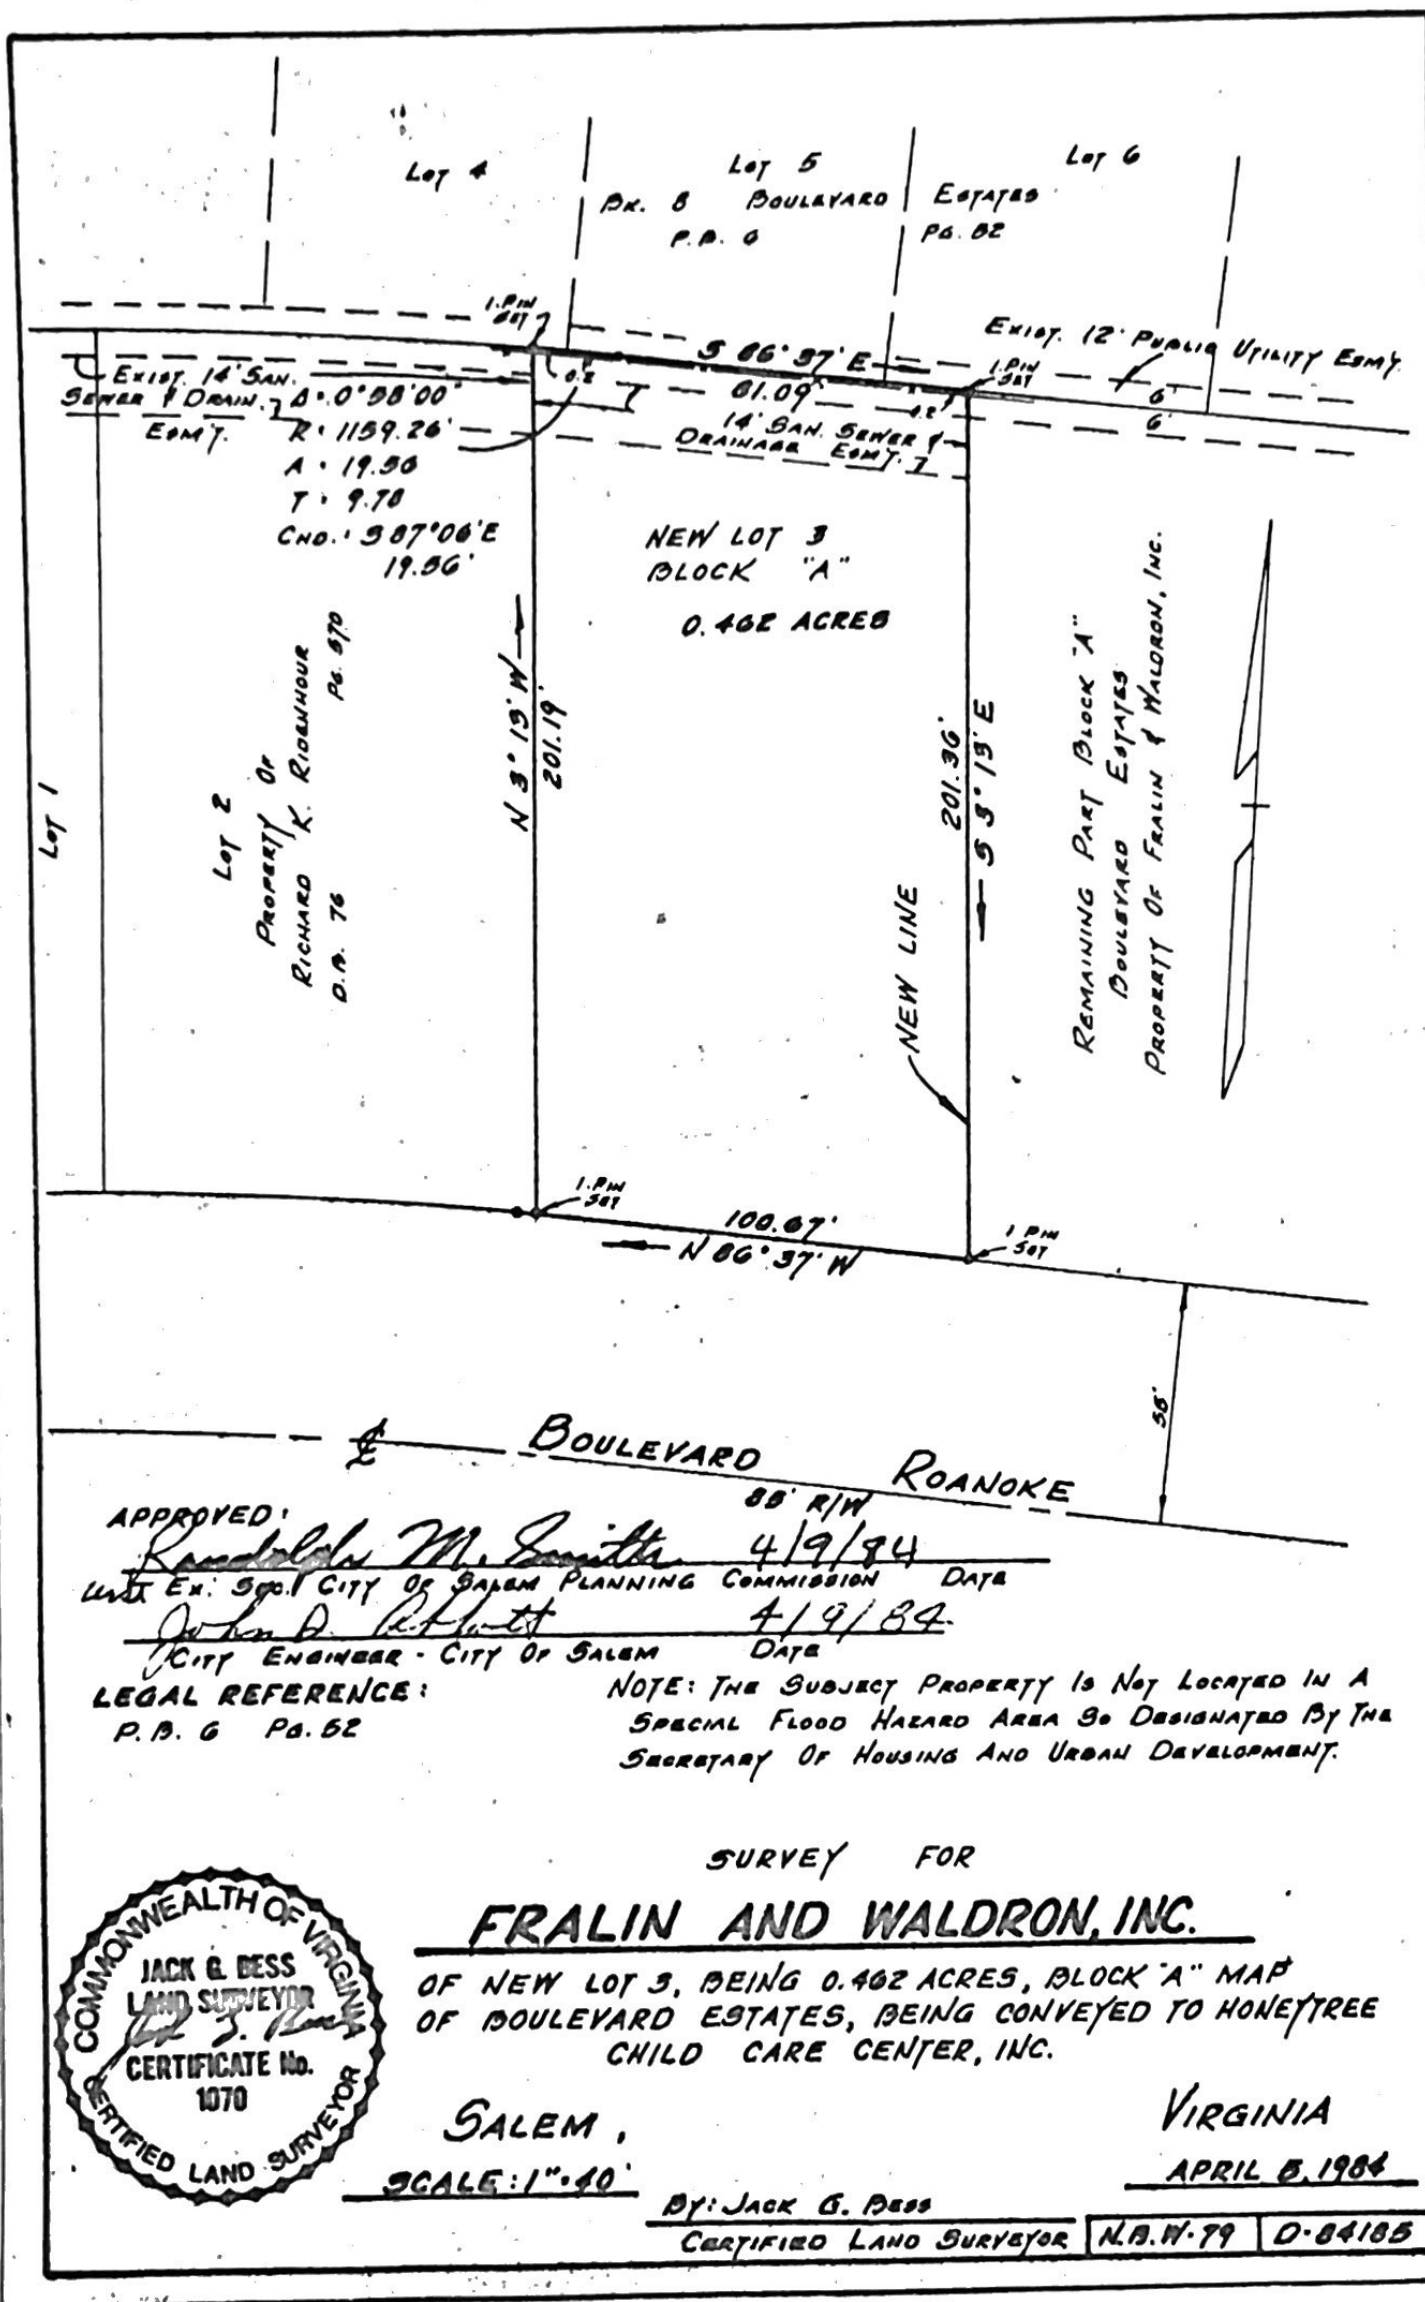 LOT 4
LOT 5
LOT 6
BK. 8 BOULEVARD ESTATES
P.B. 6 PG. 52
I. PIN SET
S 86° 37' E
81.09'
I. PIN SET
EXIST. 12' PUBLIC UTILITY ESMT.
6'
6'
0.2'
0.2'
EXIST. 14' SAN.
SEWER & DRAIN.
ESMT.
14' SAN. SEWER &
DRAINAGE ESMT.
Δ = 0°58'00"
R = 1159.26'
A = 19.56
T = 9.78
CHD. = S 87°06' E
19.56'
NEW LOT 3
BLOCK "A"
0.462 ACRES
LOT 1
LOT 2
PROPERTY OF
RICHARD K. RIDENHOUR
D.B. 76 PG. 570
N 3° 13' W
201.19'
201.36'
S 3° 13' E
NEW LINE
REMAINING PART BLOCK "A"
BOULEVARD ESTATES
PROPERTY OF FRALIN & WALDRON, INC.
I. PIN SET
100.67'
N 86° 37' W
I. PIN SET
BOULEVARD ROANOKE
R/W
APPROVED:
Randolph M. Smith 4/9/84
Ex. Sec. CITY OF SALEM PLANNING COMMISSION DATE
John D. Abbott 4/9/84
CITY ENGINEER - CITY OF SALEM DATE
LEGAL REFERENCE:
P.B. 6 PG. 52
NOTE: THE SUBJECT PROPERTY IS NOT LOCATED IN A
SPECIAL FLOOD HAZARD AREA SO DESIGNATED BY THE
SECRETARY OF HOUSING AND URBAN DEVELOPMENT.
SURVEY FOR
FRALIN AND WALDRON, INC.
OF NEW LOT 3, BEING 0.462 ACRES, BLOCK "A" MAP
OF BOULEVARD ESTATES, BEING CONVEYED TO HONEYTREE
CHILD CARE CENTER, INC.
COMMONWEALTH OF VIRGINIA
JACK G. BESS
LAND SURVEYOR
CERTIFICATE No.
1070
CERTIFIED LAND SURVEYOR
SALEM, VIRGINIA
SCALE: 1" = 40'
APRIL 5, 1984
BY: JACK G. BESS
CERTIFIED LAND SURVEYOR
N.B.W-79
D-84185